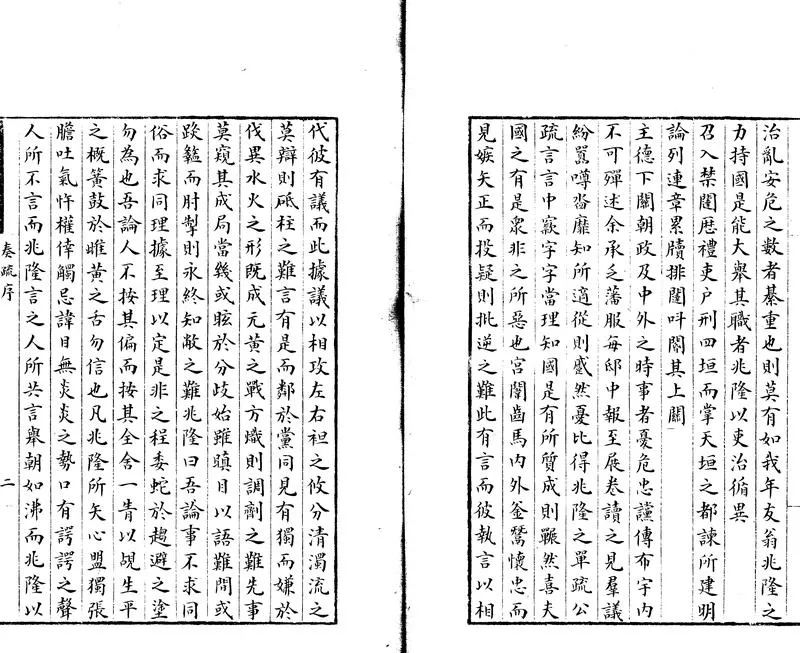 治亂安危之數者綦重也則莫有如我年友翁兆隆之
力持國是能大舉其職者兆隆以吏治循異
召入禁闥歷禮吏戶刑四垣而掌天垣之都諫所建明
論列連章累牘排闥呌閽其上關
主德下關朝政及中外之時事者憂危忠讜傳布宇内
不可殫述余承乏藩服每邸中報至展卷讀之見羣議
紛囂噂沓靡知所適從則慼然憂比得兆隆之單疏公
疏言言中窾字字當理知國是有所質成則囅然喜夫
國之有是衆非之所惡也宮闈齒馬内外釜鬵懷忠而
見嫉矢正而投疑則批逆之難此有言而彼執言以相
代彼有議而此據議以相攻左右袒之攸分清濁流之
莫辯則砥柱之難言有是而鄰於黨同見有獨而嫌於
伐異水火之形既成元黄之戰方熾則調劑之難先事
莫窺其成局當幾或眩於分歧始雖瞋目以語難問或
跋𪗪而肘掣則永終知敝之難兆隆曰吾論事不求同
俗而求同理據至理以定是非之程委蛇於趨避之塗
勿為也吾論人不按其偏而按其全舍一眚以覘生平
之概簧鼓於雌黄之舌勿信也凡兆隆所矢心盟獨張
膽吐氣忤權倖觸忌諱目無炎炎之勢口有諤諤之聲
人所不言而兆隆言之人所共言舉朝如沸而兆隆以
奏疏序
二